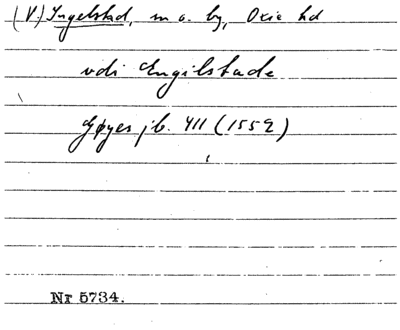 (V.) Ingelstad, m a. by, Oxie hd
vdi Engilstade
Gøyes jb. 411 (1552)
Nr 5734.